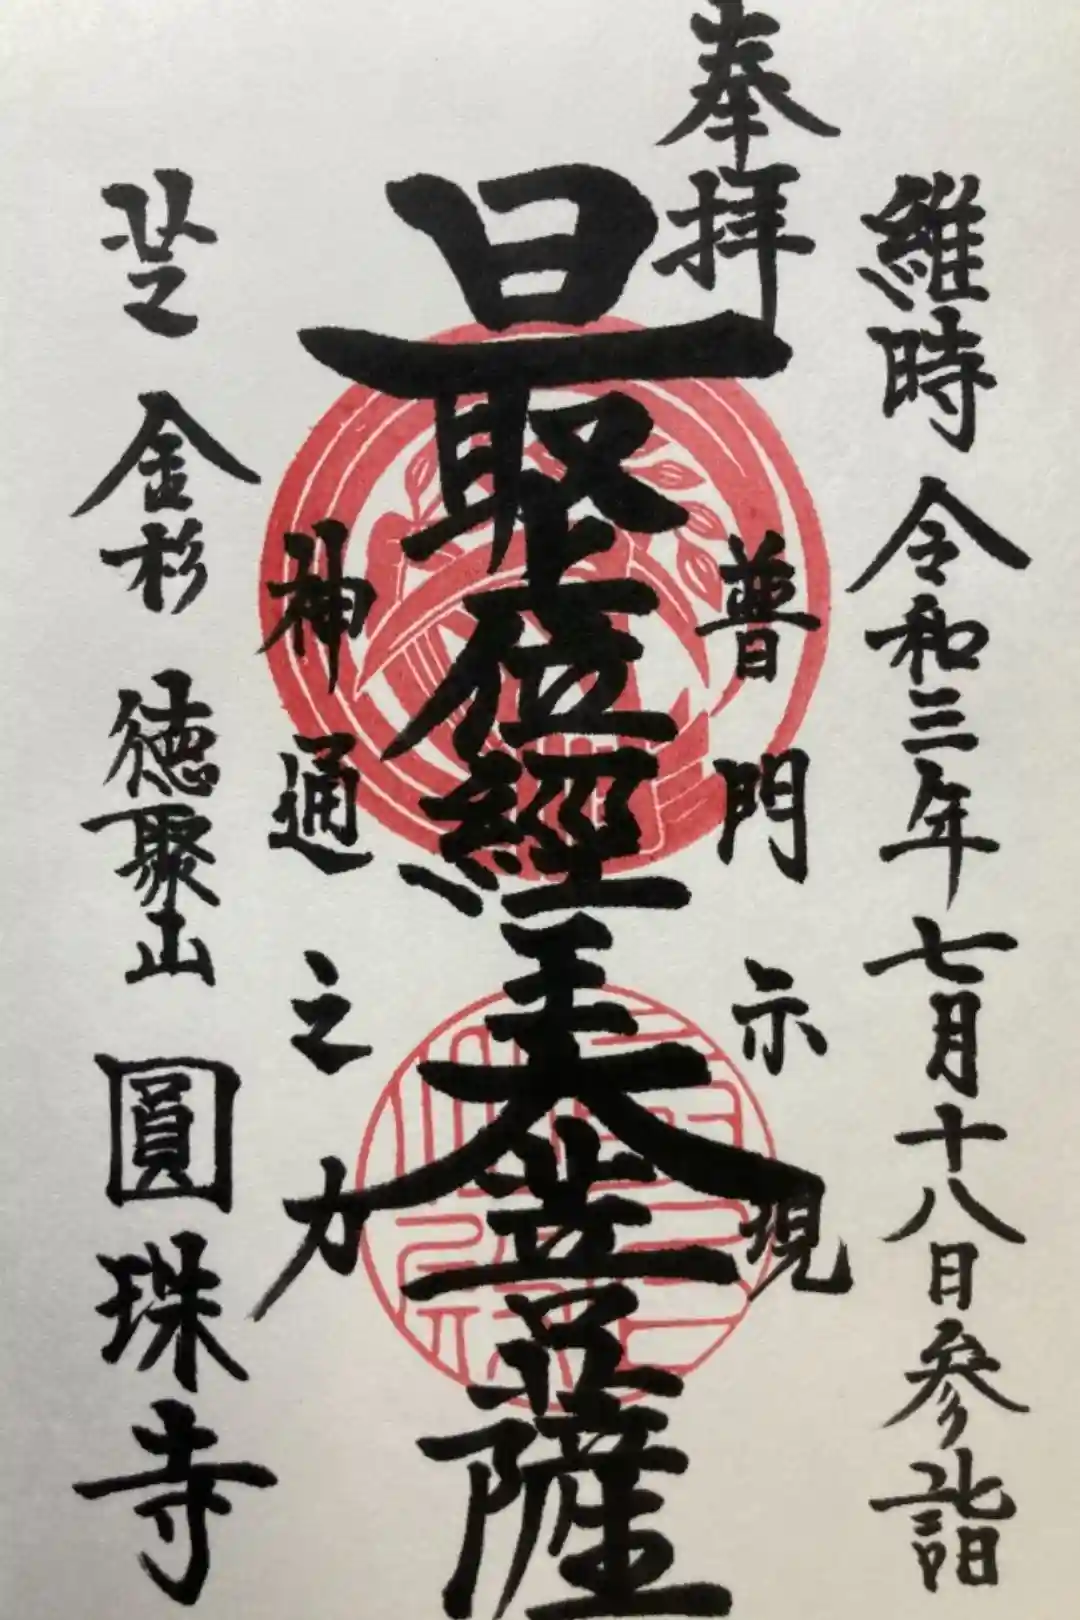 維時 令和三年七月十八日参詣
奉拝
普門示現
最上位經王大菩薩
神通之力
金杉 徳聚山 圓珠寺